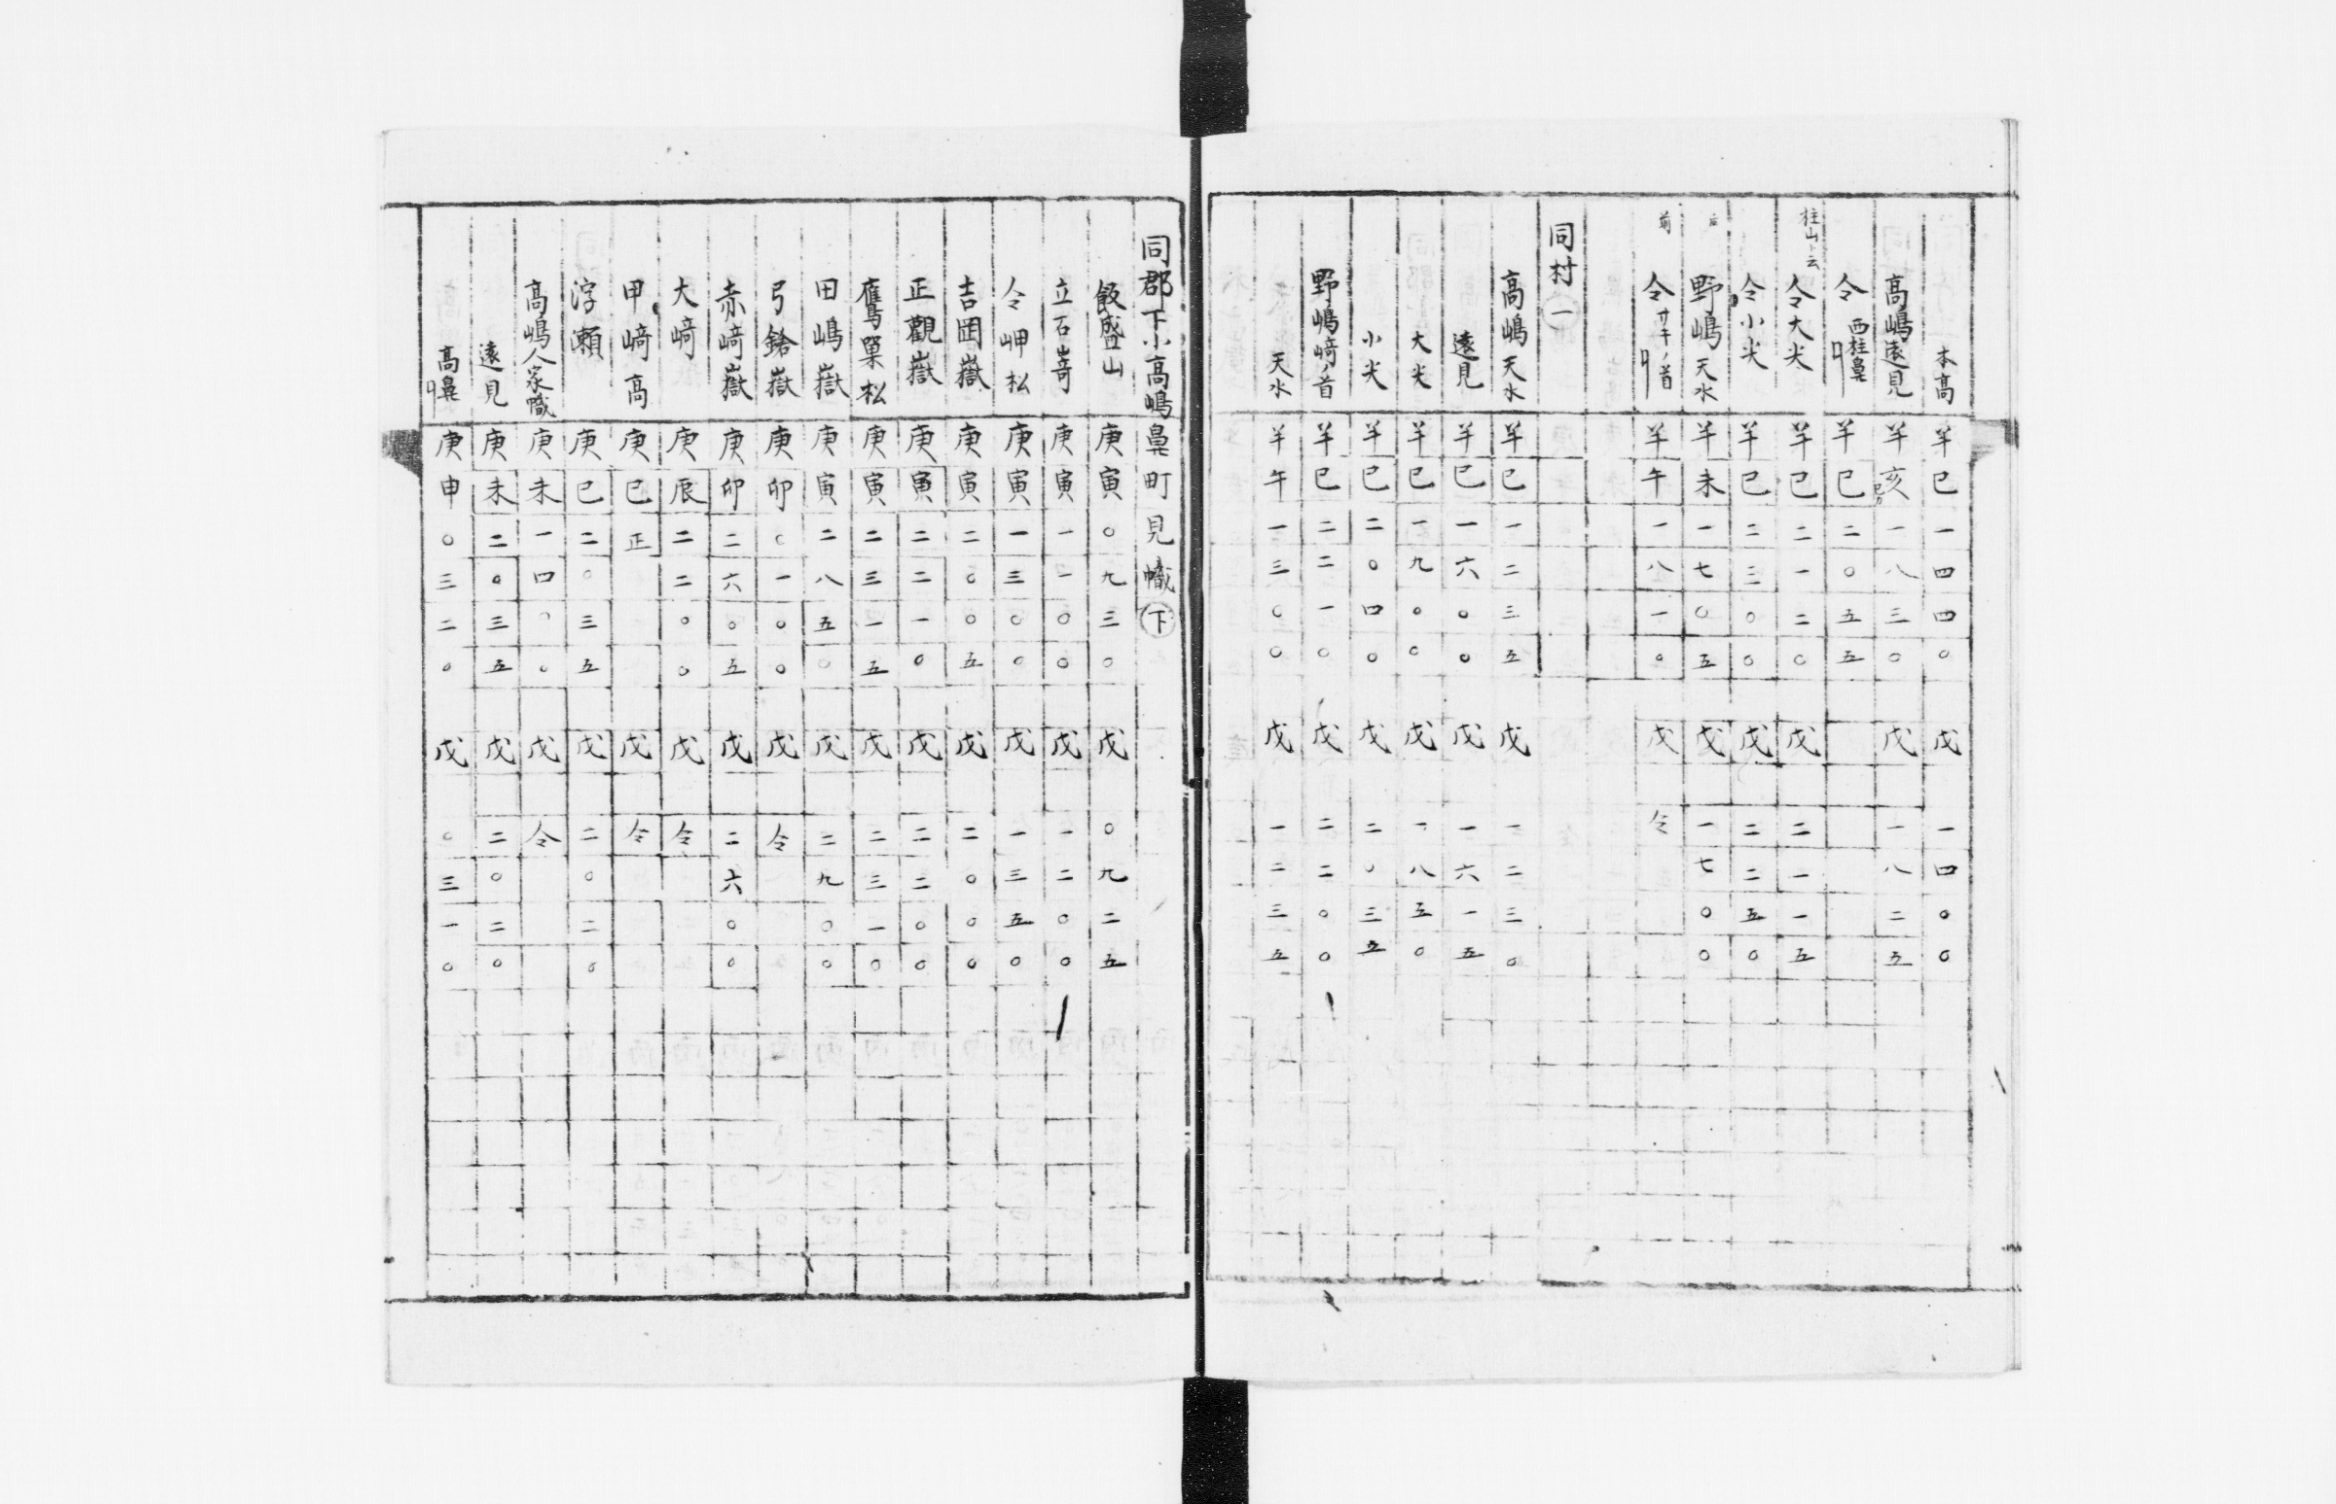 本高 羊 巳 一 四 四 〇 戊 一 四 〇 〇
高嶋遠見 羊 亥 一 八 三 〇 戊 一 八 二 五
仝 西柱鼻 羊 巳 二 〇 五 五
柱山ト云 仝大尖 羊 巳 二 一 二 〇 戊 二 一 一 五
仝小尖 羊 巳 二 三 〇 〇 戊 二 二 五 〇
野嶋天水 羊 未 一 七 〇 五 戊 一 七 〇 〇
前 仝サキノ首 羊 午 一 八 一 〇 戊 仝
同村 一
高嶋天水 羊 巳 一 二 三 五 戊 一 二 三 〇
遠見 羊 巳 一 六 〇 〇 戊 一 六 一 五
大尖 羊 巳 一 九 〇 〇 戊 一 八 五 〇
小尖 羊 巳 二 〇 四 〇 戊 二 〇 三 五
野嶋﨑ノ首 羊 巳 二 二 一 〇 戊 二 二 〇 〇
天水 羊 午 一 三 〇 〇 戊 一 二 三 五
同郡下小高嶋鼻町見幟 下
飯盛山 庚 寅 〇 九 三 〇 戊 〇 九 二 五
立石嵜 庚 寅 一 一 〇 〇 戊 一 二 〇 〇
仝岬松 庚 寅 一 三 〇 〇 戊 一 三 五 〇
吉岡嶽 庚 寅 二 〇 〇 五 戊 二 〇 〇 〇
正觀嶽 庚 寅 二 二 一 〇 戊 二 二 〇 〇
鷹巣松 庚 寅 二 三 一 五 戊 二 三 一 〇
田嶋嶽 庚 寅 二 八 五 〇 戊 二 九 〇 〇
弓鎗嶽 庚 卯 〇 一 〇 〇 戊 仝
赤﨑嶽 庚 卯 二 六 〇 五 戊 二 六 〇 〇
大﨑 庚 辰 二 二 〇 〇 戊 仝
甲﨑高 庚 巳 正 戊 仝
浮瀬 庚 巳 二 〇 三 五 戊 二 〇 二 〇
高嶋人家幟 庚 未 一 四 〇 〇 戊 仝
遠見 庚 未 二 〇 三 五 戊 二 〇 二 〇
高鼻 庚 申 〇 三 二 〇 戊 〇 三 一 〇